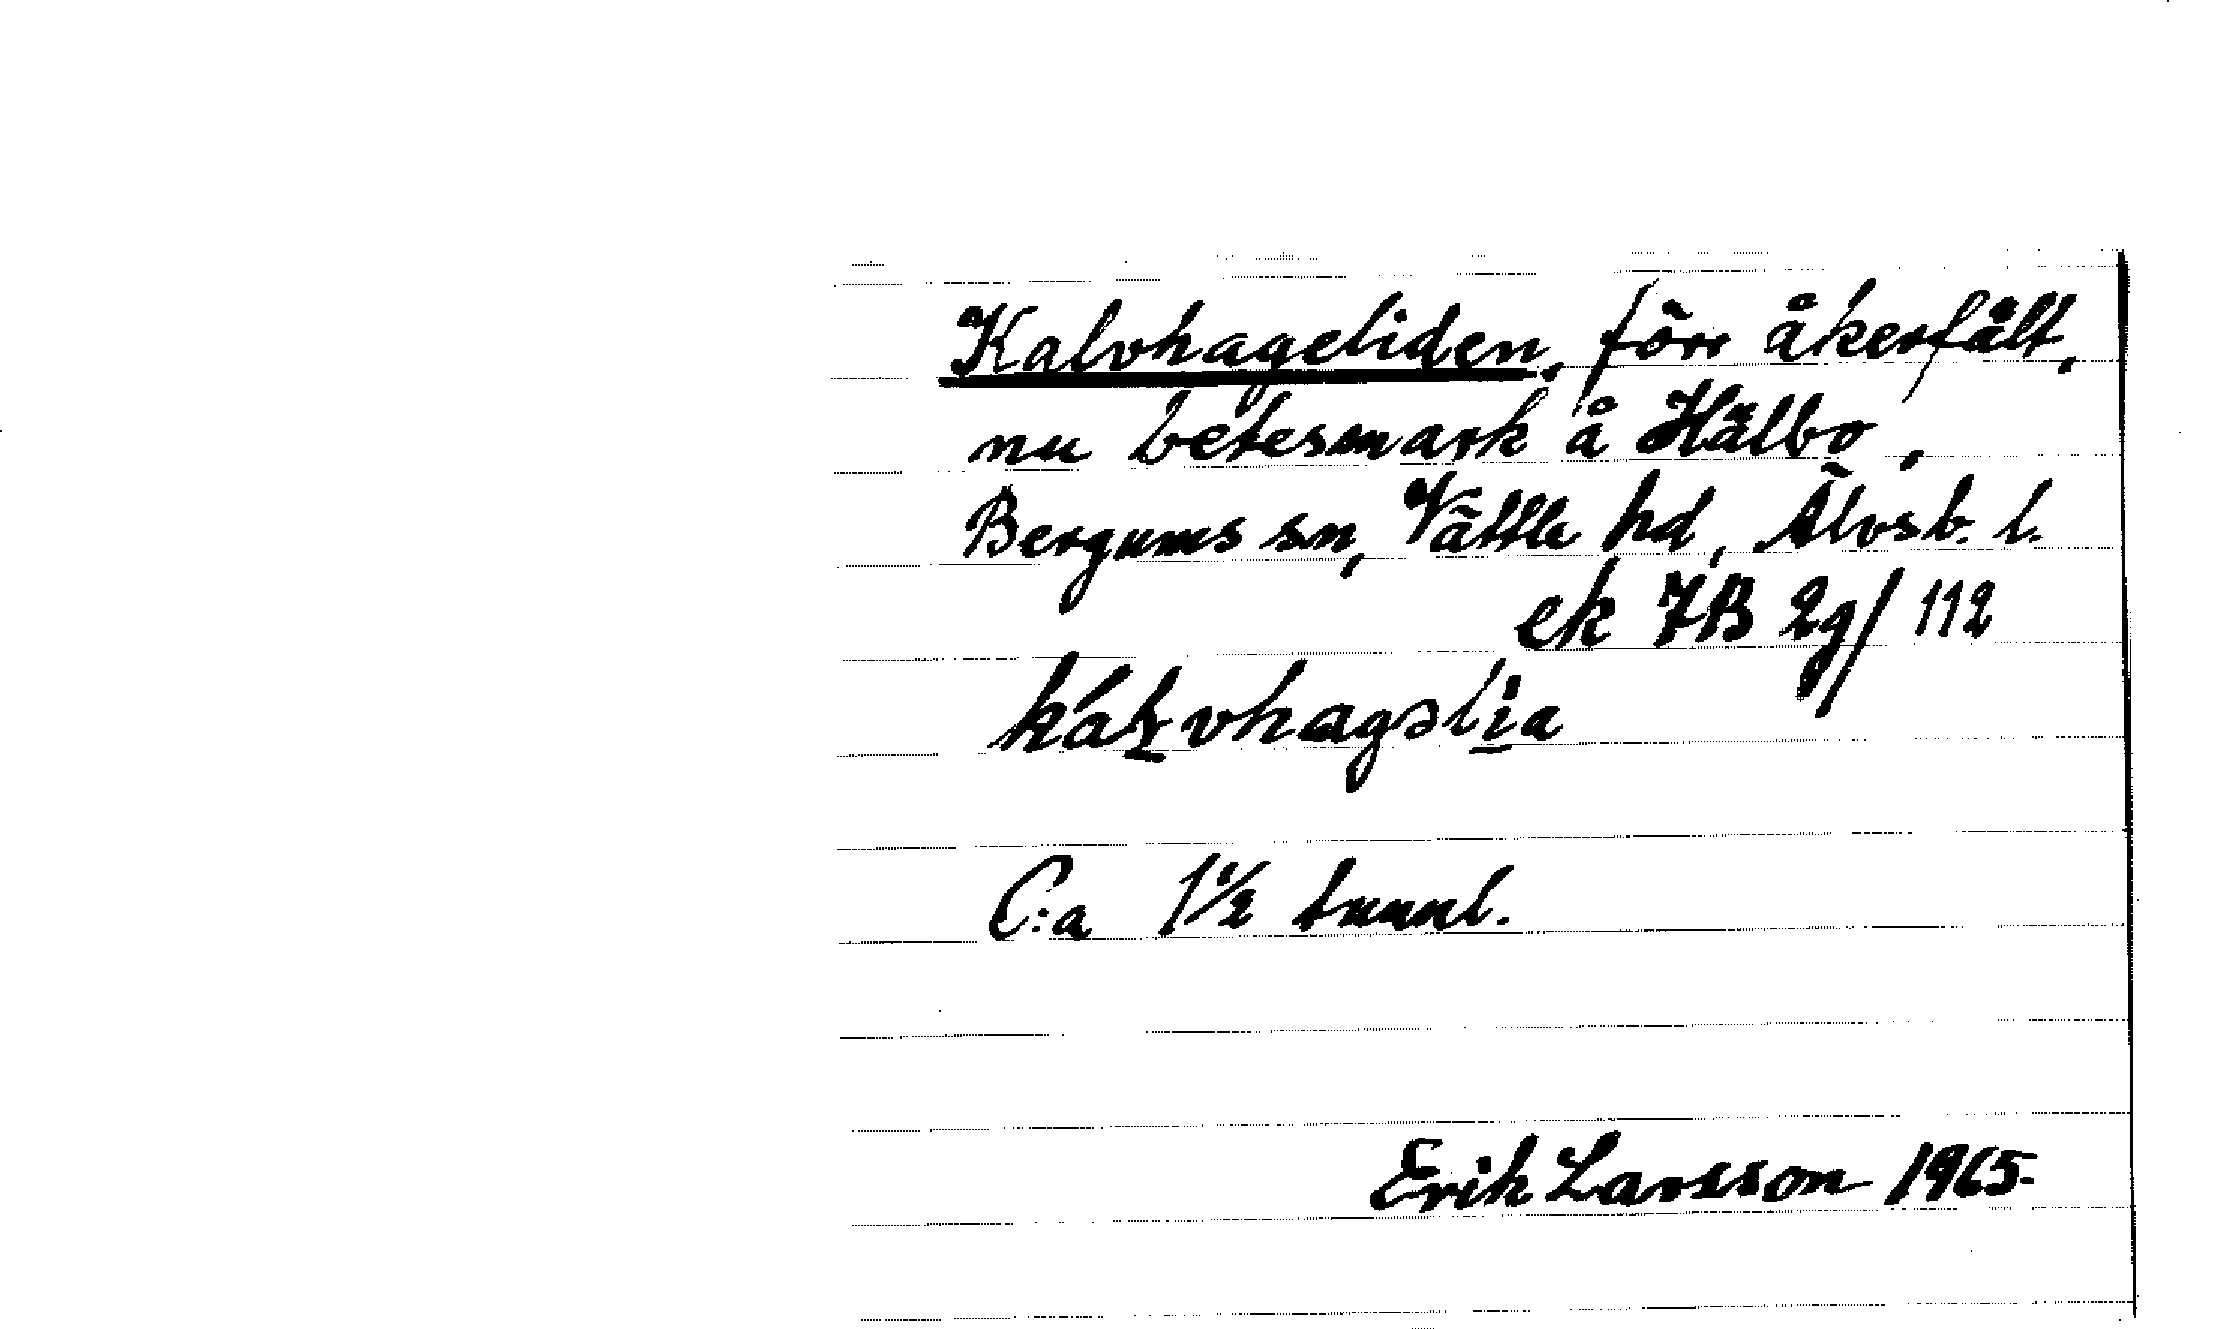 Kalvhageliden, förr åkerfält,
nu betesmark å Hälbo,
Bergums sn, Vättle hd, Älvsb. l.
ek 7B 2g/112
kalvhagslia
C:a 1½ tunnl.
Erik Larsson 1965.